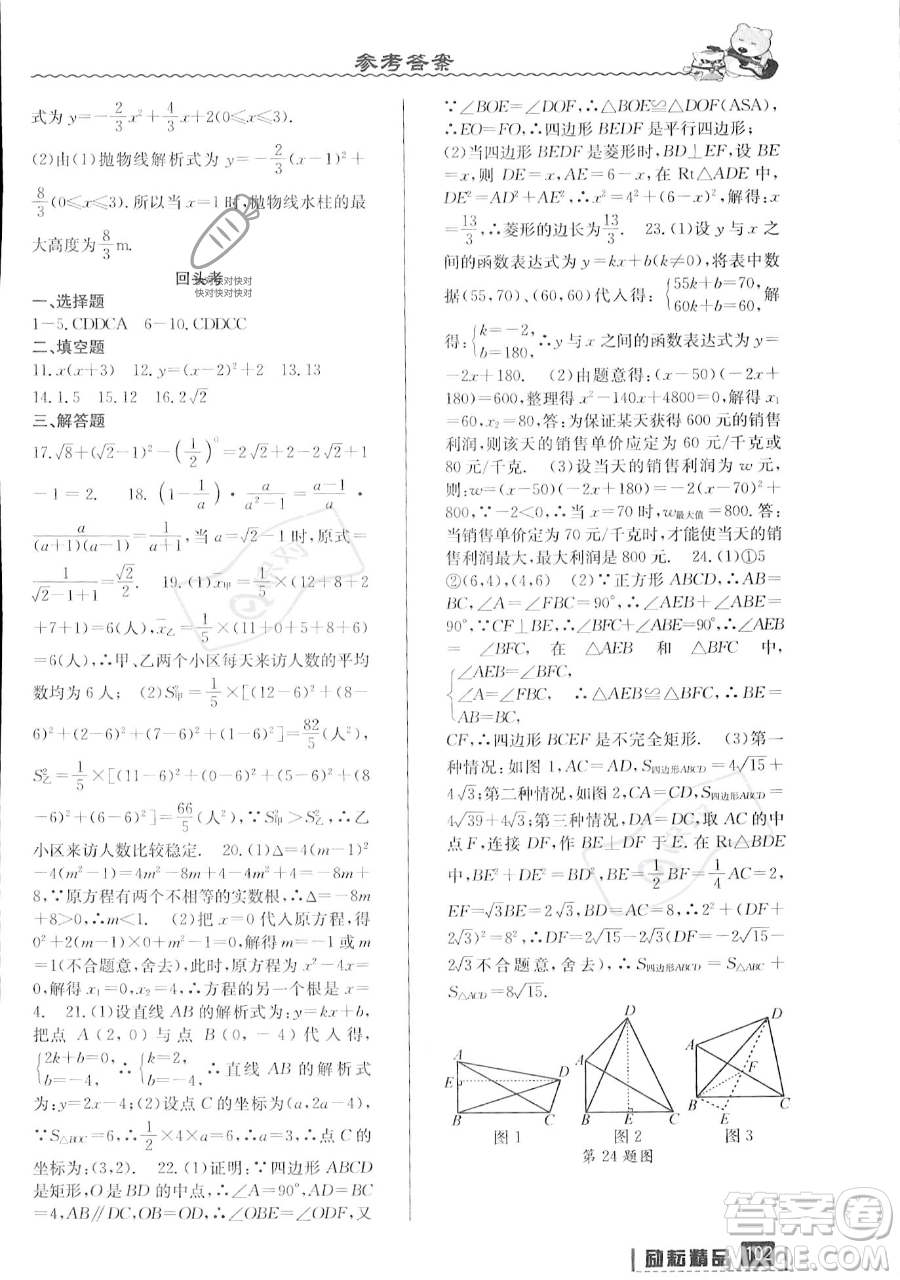 参考答案
式为 y=-2/3x²+4/3x+2(0≤x≤3).
(2)由(1)抛物线解析式为 y=-2/3(x-1)²+
8/3(0≤x≤3). 所以当 x=1 时,抛物线水柱的最
大高度为8/3m.
回头考
快对快对快对
快对快对快对
一、选择题
1-5. CDDCA 6-10. CDDCC
二、填空题
11. x(x+3) 12. y=(x-1)²+2 13. 13
14. 1.5 15. 12 16. 2√2
三、解答题
17. √8+(√2-1)²-(1/2)⁰=2√2+2-2√2+1
-1=2. 18. (1-1/a)·a/(a²-1)=(a-1)/a·
a/((a+1)(a-1))=1/(a+1),当 a=√2-1 时,原式=
1/(√2-1+1)=√2/2. 19. (1)x̄甲=1/5×(12+8+2
+7+1)=6(人),x̄乙=1/5×(10+0+3+5+12)
=6(人),∴甲、乙两个小区每天来访人数的平均
数均为 6 人; (2)S²甲=1/5×[(12-6)²+(8-
6)²+(2-6)²+(7-6)²+(1-6)²]=82/5(人²),
S²乙=1/5×[(10-6)²+(8-6)²+(0-6)²+(8
-6)²+(4-6)²]=66/5(人²),∵S²甲>S²乙,∴乙
小区来访人数比较稳定. 20. (1)Δ=4(m-1)²
-4(m²-1)=4(m²-2m+1-m²+1)=-8m
+8=∵原方程有两个不相等的实数根,∴Δ=-8m
+8>0,∴m<1. (2)把 x=0 代入原方程,得
0²+2(0-1)×0+m²-1=0,解得 m=-1 或 m
=1(不合题意,舍去),此时,原方程为 x²-4x=
0,解得 x₁=0,x₂=4,∴方程的另一个根是 x=
4. 21. (1)设直线 AB 的解析式为:y=kx+b,
把点 A(2,0)与点 B(0,-4)代入得,
{2k+b=0, b=-4, ∴{k=2, b=-4, ∴直线 AB 的解析式
为:y=2x-4;(2)设点 C 的坐标为(a,2a-4),
∵S△BOC=1/2×4×a=2a=6,∴a=3,∴点 C 的
坐标为:(3,2). 22. (1)证明:∵四边形 ABCD
是矩形,O 是 BD 的中点,∴∠A=90°,AD=BC=
4,AB∥DC,OB=OD,∴∠OBE=∠ODF,又
∵∠BOE=∠DOF,∴△BOE≌△DOF(ASA),
∴EO=FO,∴四边形 BEDF 是平行四边形;
(2)当四边形 BEDF 是菱形时,BD⊥EF,设 BE
=x,则 DE=x,AE=6-x,在 Rt△ADE 中,
DE²=AD²+AE²,∴x²=4²+(6-x)²,解得:x
=13/3,∴菱形的边长为13/3. 23. (1)设 y 与 x 之
间的函数表达式为 y=kx+b(k≠0),将表中数
据(55,70)、(60,60)代入得:{55k+b=70, 60k+b=60, 解
得:{k=-2, b=180, ∴y 与 x 之间的函数表达式为 y=
-2x+180. (2)由题意得:(x-50)(-2x+
180)=600,整理得 x²-140x+4800=0,解得 x₁
=60,x₂=80,答:为保证某天获得 600 元的销售
利润,则该天的销售单价应定为 60 元/千克或
80 元/千克. (3)设当天的销售利润为 w 元,
则:w=(x-50)(-2x+180)=-2(x-70)²+
800,∵-2<0,∴当 x=70 时,w最大值=800. 答:
当销售单价定为 70 元/千克时,才能使当天的销
售利润最大,最大利润是 800 元. 24. (1)①5
②(6,4),(4,6) (2)∵正方形 ABCD,∴AB=
BC,∠A=∠FBC=90°,∴∠AEB+∠ABE=
90°,∵CF⊥BE,∴∠BFC+∠ABE=90°,∴∠AEB
=∠BFC, 在△AEB 和△BFC 中,
{∠AEB=∠BFC,
∠A=∠FBC, ∴△AEB≌△BFC,∴BE=
AB=BC,
CF,∴四边形 BCEF 是不完全矩形. (3)第一
种情况:如图 1,AC=AD,S四边形ABCD=4√15+
4√3;第二种情况,如图 2,CA=CD,S四边形ABCD=
4√39+4√3;第三种情况,DA=DC,取 AC 的中
点 F,连接 DF,作 BE⊥DF 于 E. 在 Rt△BDE
中,BE²+DE²=BD²,∵BE=1/2BF=1/4AC=2,
EF=√3BE=2√3,BD=AC=8,∴2²+(DF+
2√3)²=8²,∴DF=2√15-2√3(DF=-2√15-
2√3不合题意,舍去),∴S四边形ABCD=S△ABC+
S△ACD=8√15.
A E D B C
图 1
D A B E C
图 2
D A F B E C
图 3
第 24 题图
励耘精品 102